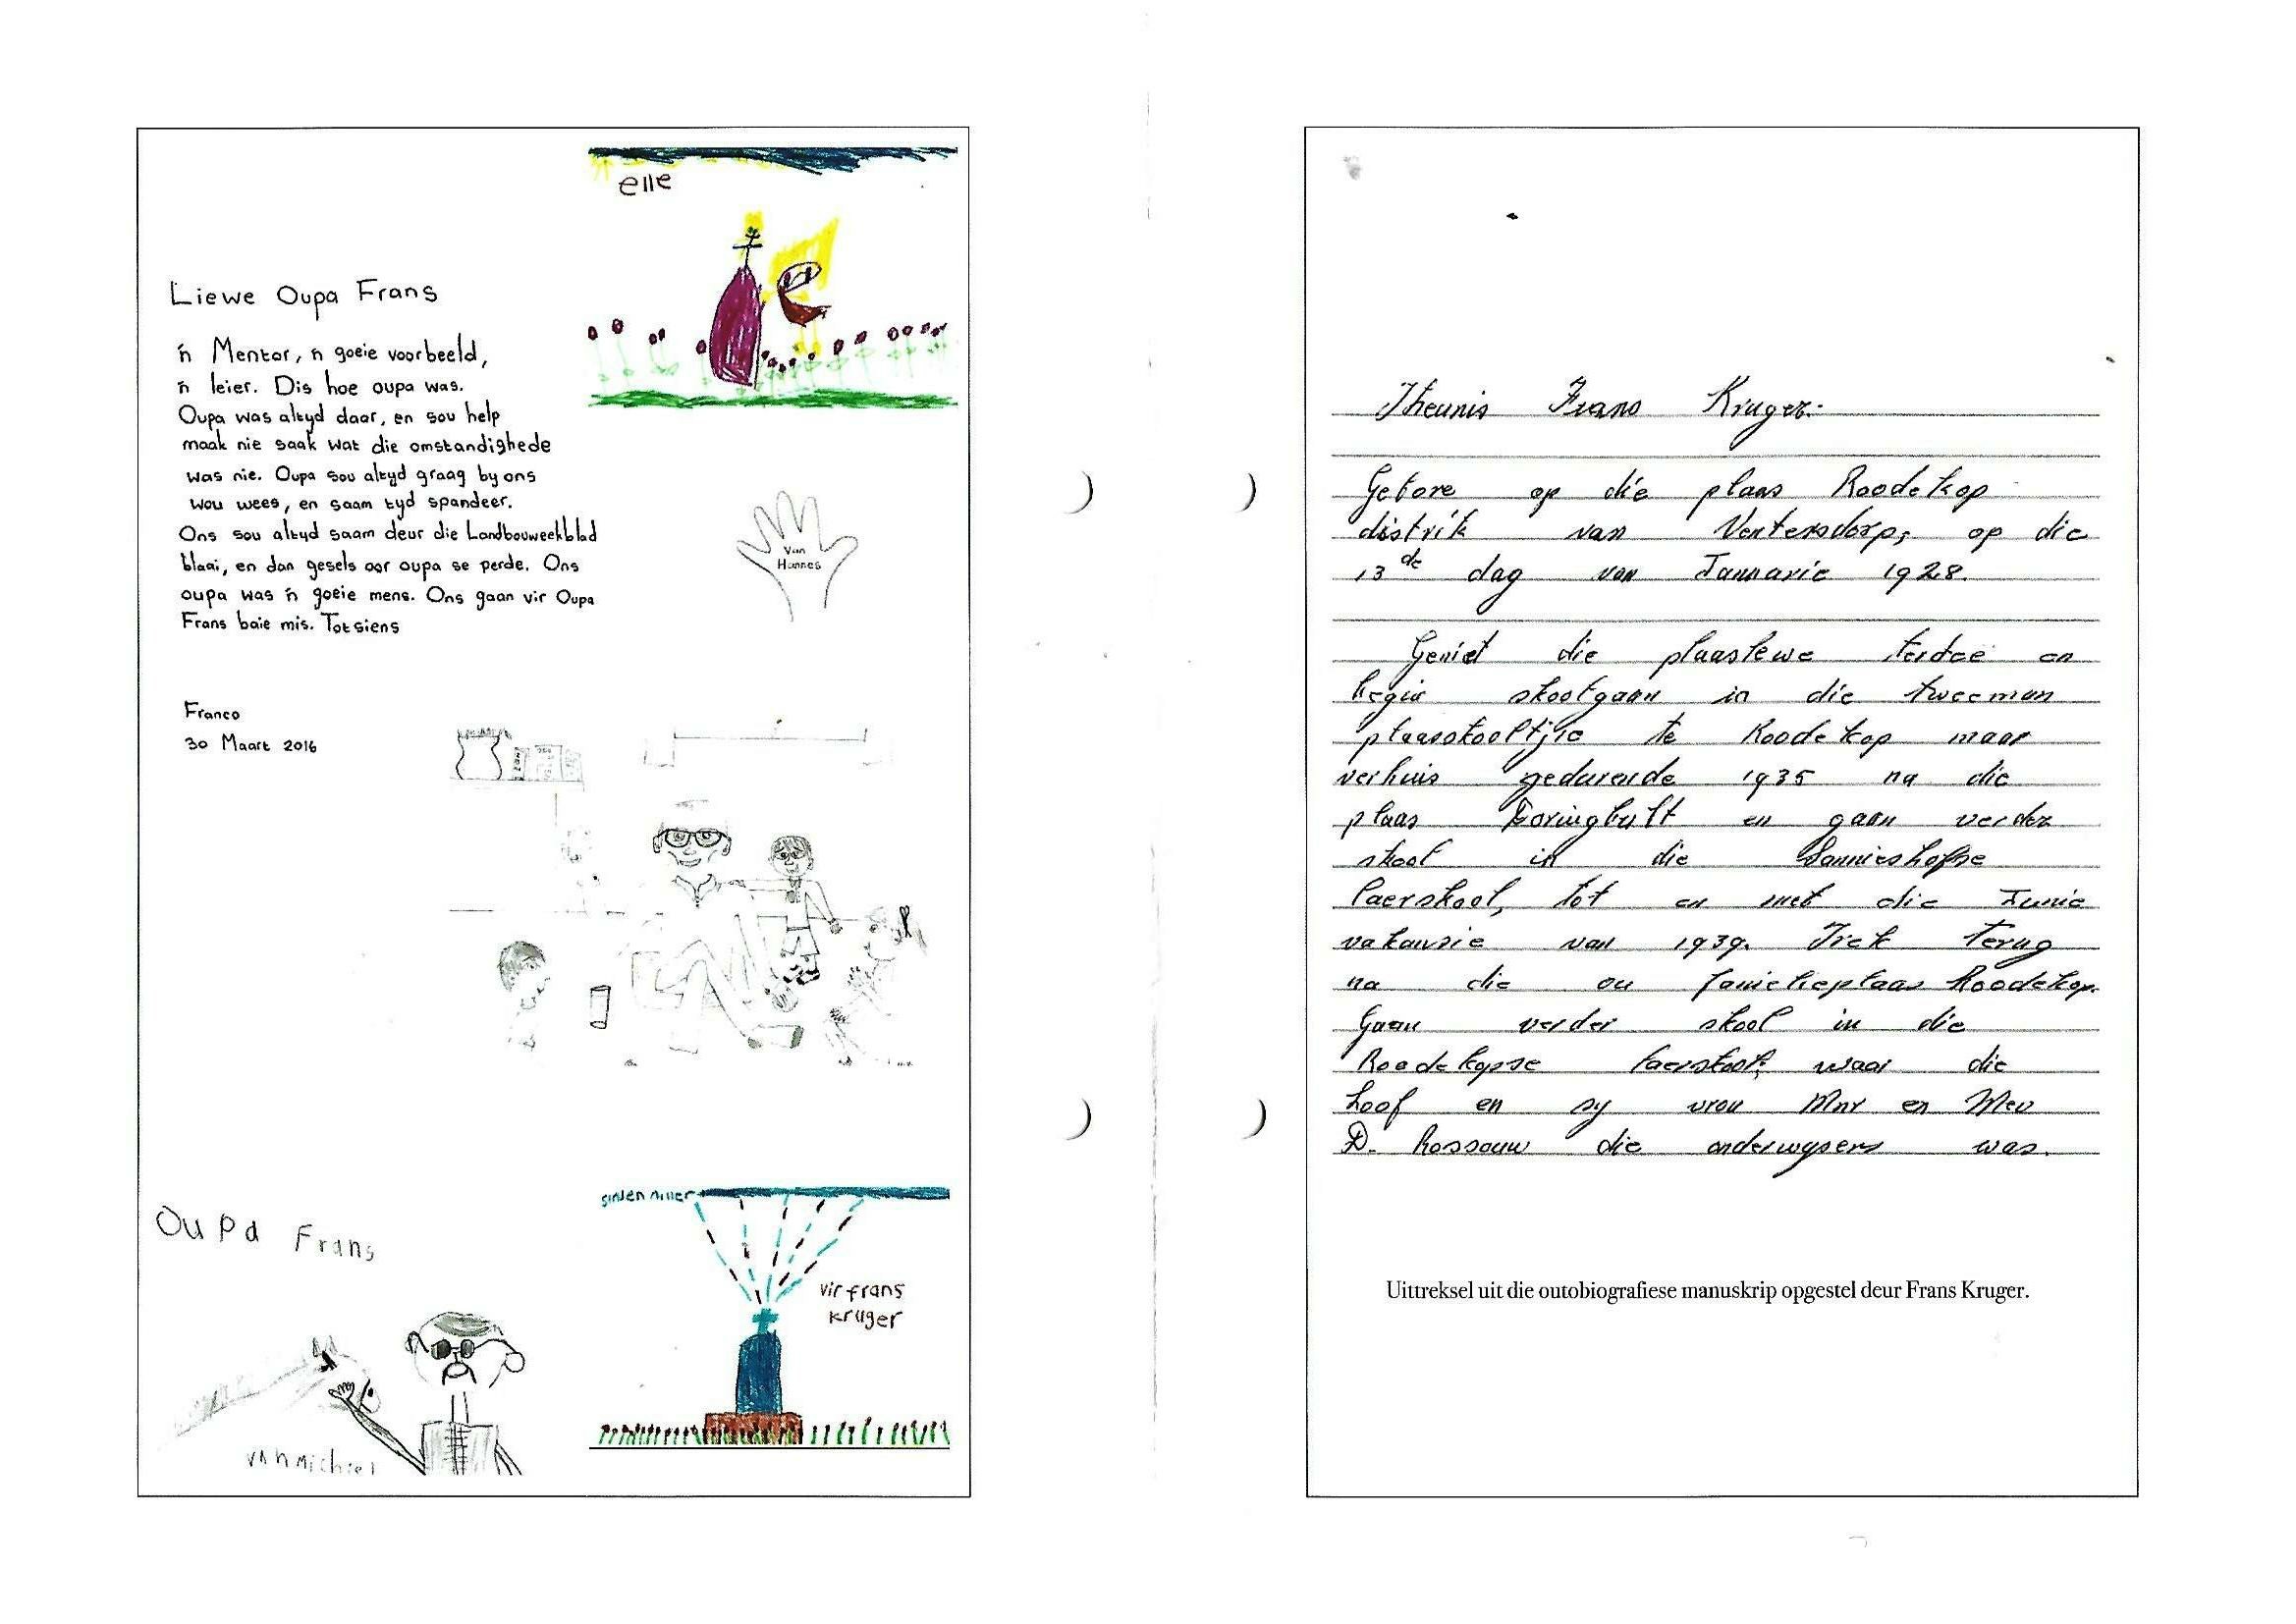 elle
Liewe Oupa Frans
'n Mentor, 'n goeie voorbeeld,
'n leier. Dis hoe oupa was.
Oupa was altyd daar, en sou help
maak nie saak wat die omstandighede
was nie. Oupa sou altyd graag by ons
wou wees, en saam tyd spandeer.
Ons sou altyd saam deur die Landbouweekblad
blaai, en dan gesels oor oupa se perde. Ons
oupa was 'n goeie mens. Ons gaan vir Oupa
Frans baie mis. Totsiens
Franco
30 Maart 2016
Van
Hannes
Oupa Frans
van michiel
vir frans
kruger
Theunis Frans Kruger:-
Gebore op die plaas Roodekop
distrik van Ventersdorp, op die
13de dag van Januarie 1928.
Geniet die plaaslewe terdeë en
begin skoolgaan in die tweeman
plaasskooltjie te Roodekop maar
verhuis gedurende 1935 na die
plaas Doringbult en gaan verder
skool in die Sannieshofse
laerskool, tot en met die Junie
vakansie van 1939. Trek terug
na die ou familieplaas Roodekop.
Gaan verder skool in die
Roodekopse laerskool, waar die
hoof en sy vrou Mnr en Mev
D. Rossouw die onderwysers was.
Uittreksel uit die outobiografiese manuskrip opgestel deur Frans Kruger.